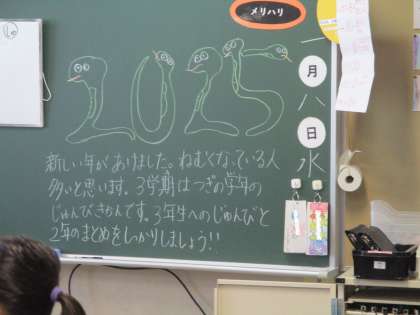 メリハリ
2025
一
月
八
日
水
新しい年があけました。ねむくなっている人
多いと思います。3学期はつぎの学年の
じゅんびきかんです。3年生へのじゅんびと
2年のまとめをしっかりしましょう!!